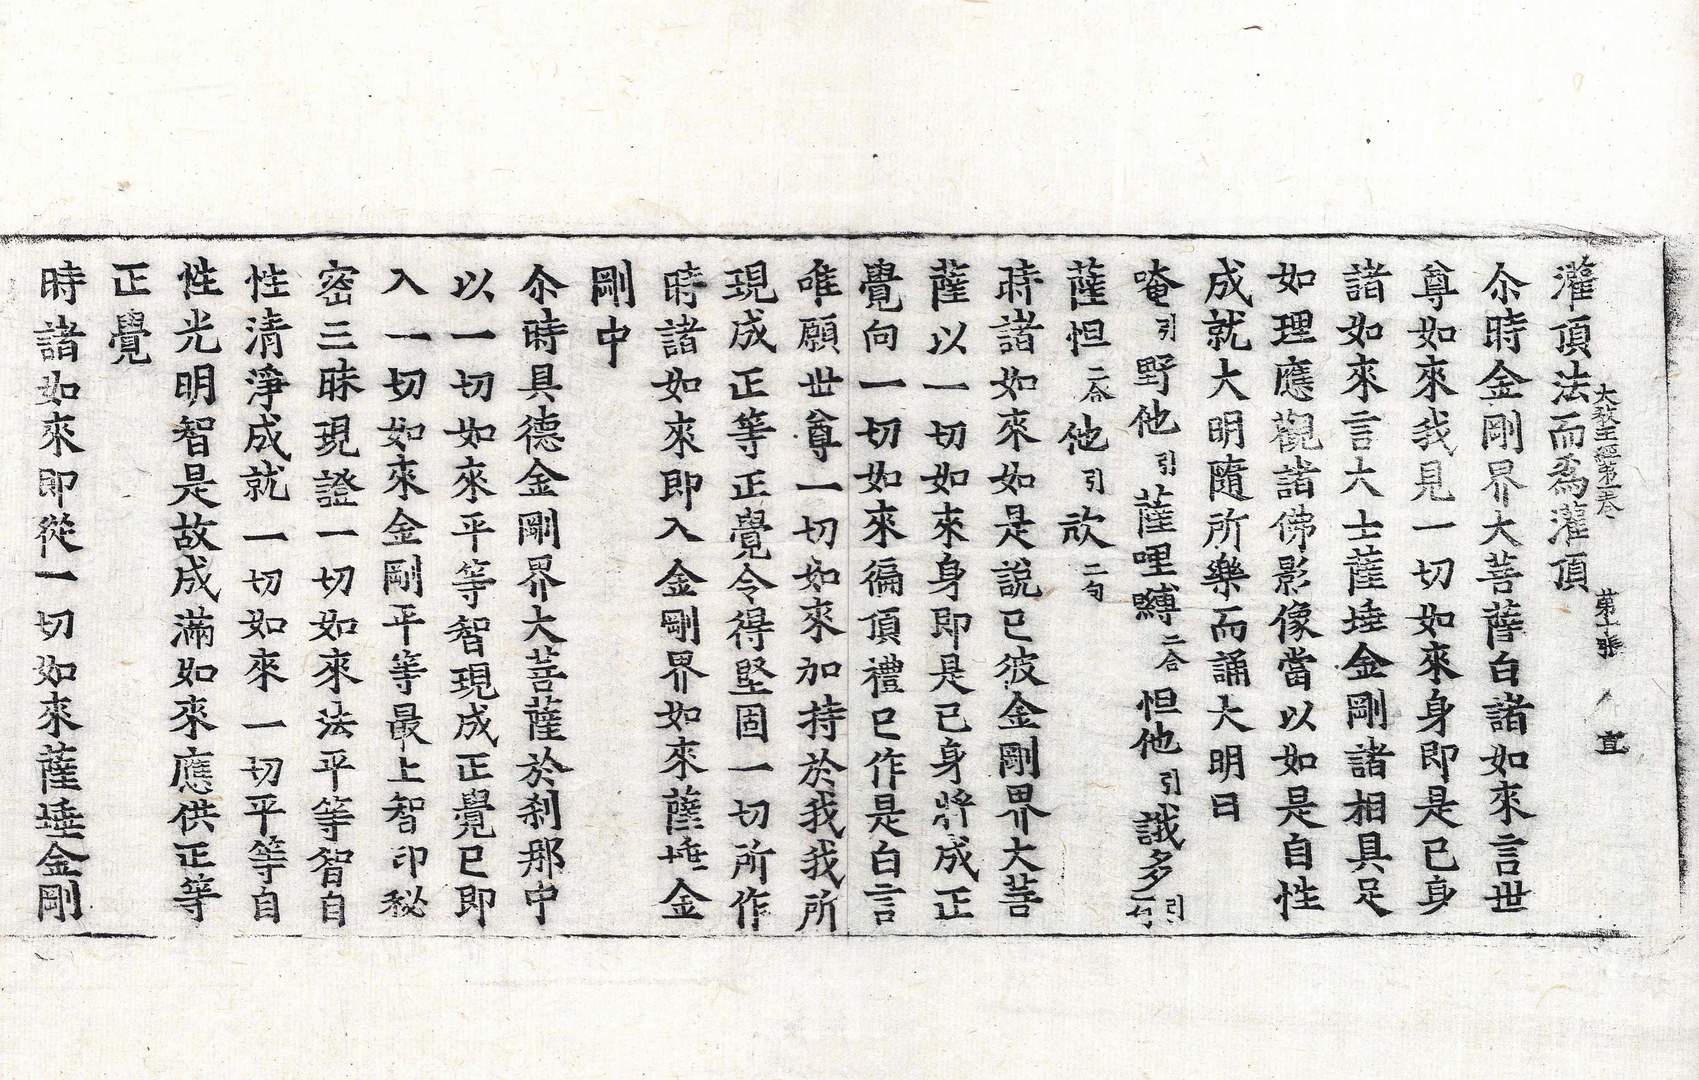 灌頂法而爲灌頂
大教王經第一卷 第十張 宜
尒時金剛界大菩薩白諸如來言世
尊如來我見一切如來身即是己身
諸如來言大士薩埵金剛諸相具足
如理應觀諸佛影像當以如是自性
成就大明隨所樂而誦大明曰
唵引野他引薩哩嚩二合怛他引誐多引一句
薩怛二合他引㰠二句
時諸如來如是說已彼金剛界大菩
薩以一切如來身即是己身將成正
覺向一切如來徧頂禮已作是白言
唯願世尊一切如來加持於我我所
現成正等正覺令得堅固一切所作
時諸如來即入金剛界如來薩埵金
剛中
尒時具德金剛界大菩薩於刹那中
以一切如來平等智現成正覺已即
入一切如來金剛平等最上智印秘
密三昧現證一切如來法平等智自
性清淨成就一切如來一切平等自
性光明智是故成滿如來應供正等
正覺
時諸如來即從一切如來薩埵金剛